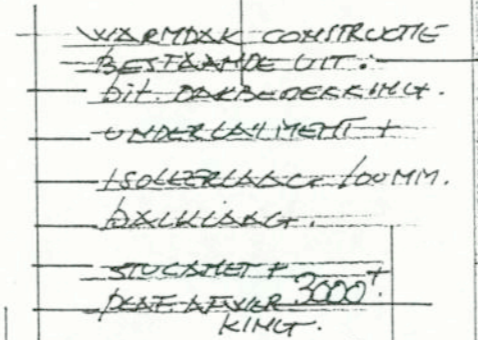 WARMDAK CONSTRUCTIE
BESTAANDE UIT:
bit. DAKBEDEKKING.
UNDERLAYMENT +
ISOLEERLAAG 100 MM.
BALKLAAG.
STUCANET +
PLAF. AFWER 3000+
KING.